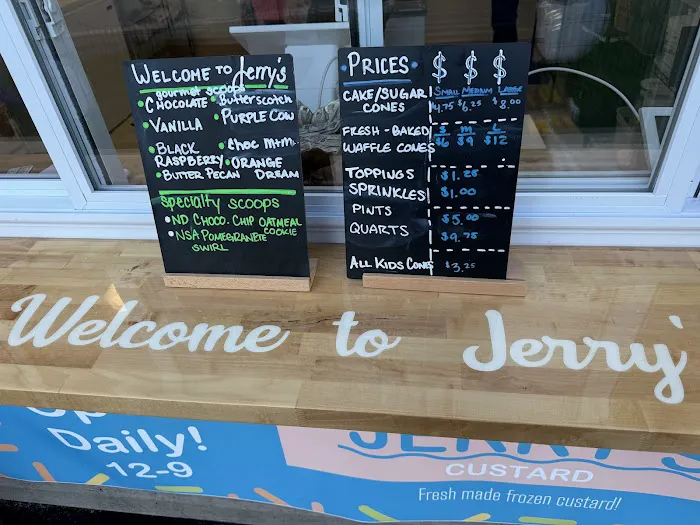 Welcome to Jerry's
gourmet scoops
• Chocolate • Butterscotch
• Vanilla • Purple Cow
• Black Raspberry • Choc M+M.
• Butter Pecan • Orange Dream
specialty scoops
• ND Choco. Chip Oatmeal Cookie
• NSA Pomegranete Swirl
• Prices • $ $ $
Small Medium Large
Cake/Sugar Cones 4.75 $6.25 $8.00
S M L
Fresh-Baked Waffle Cones $6 $9 $12
Toppings $1.25
Sprinkles $1.00
Pints $5.00
Quarts $9.75
All Kids Cones $3.25
Welcome to Jerry's
Daily!
12-9
JERRY'S
CUSTARD
Fresh made frozen custard!